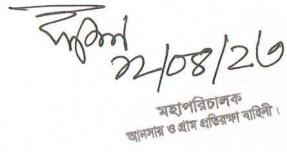 ১২/০৪/২৩
মহাপরিচালক
আনসার ও গ্রাম প্রতিরক্ষা বাহিনী।